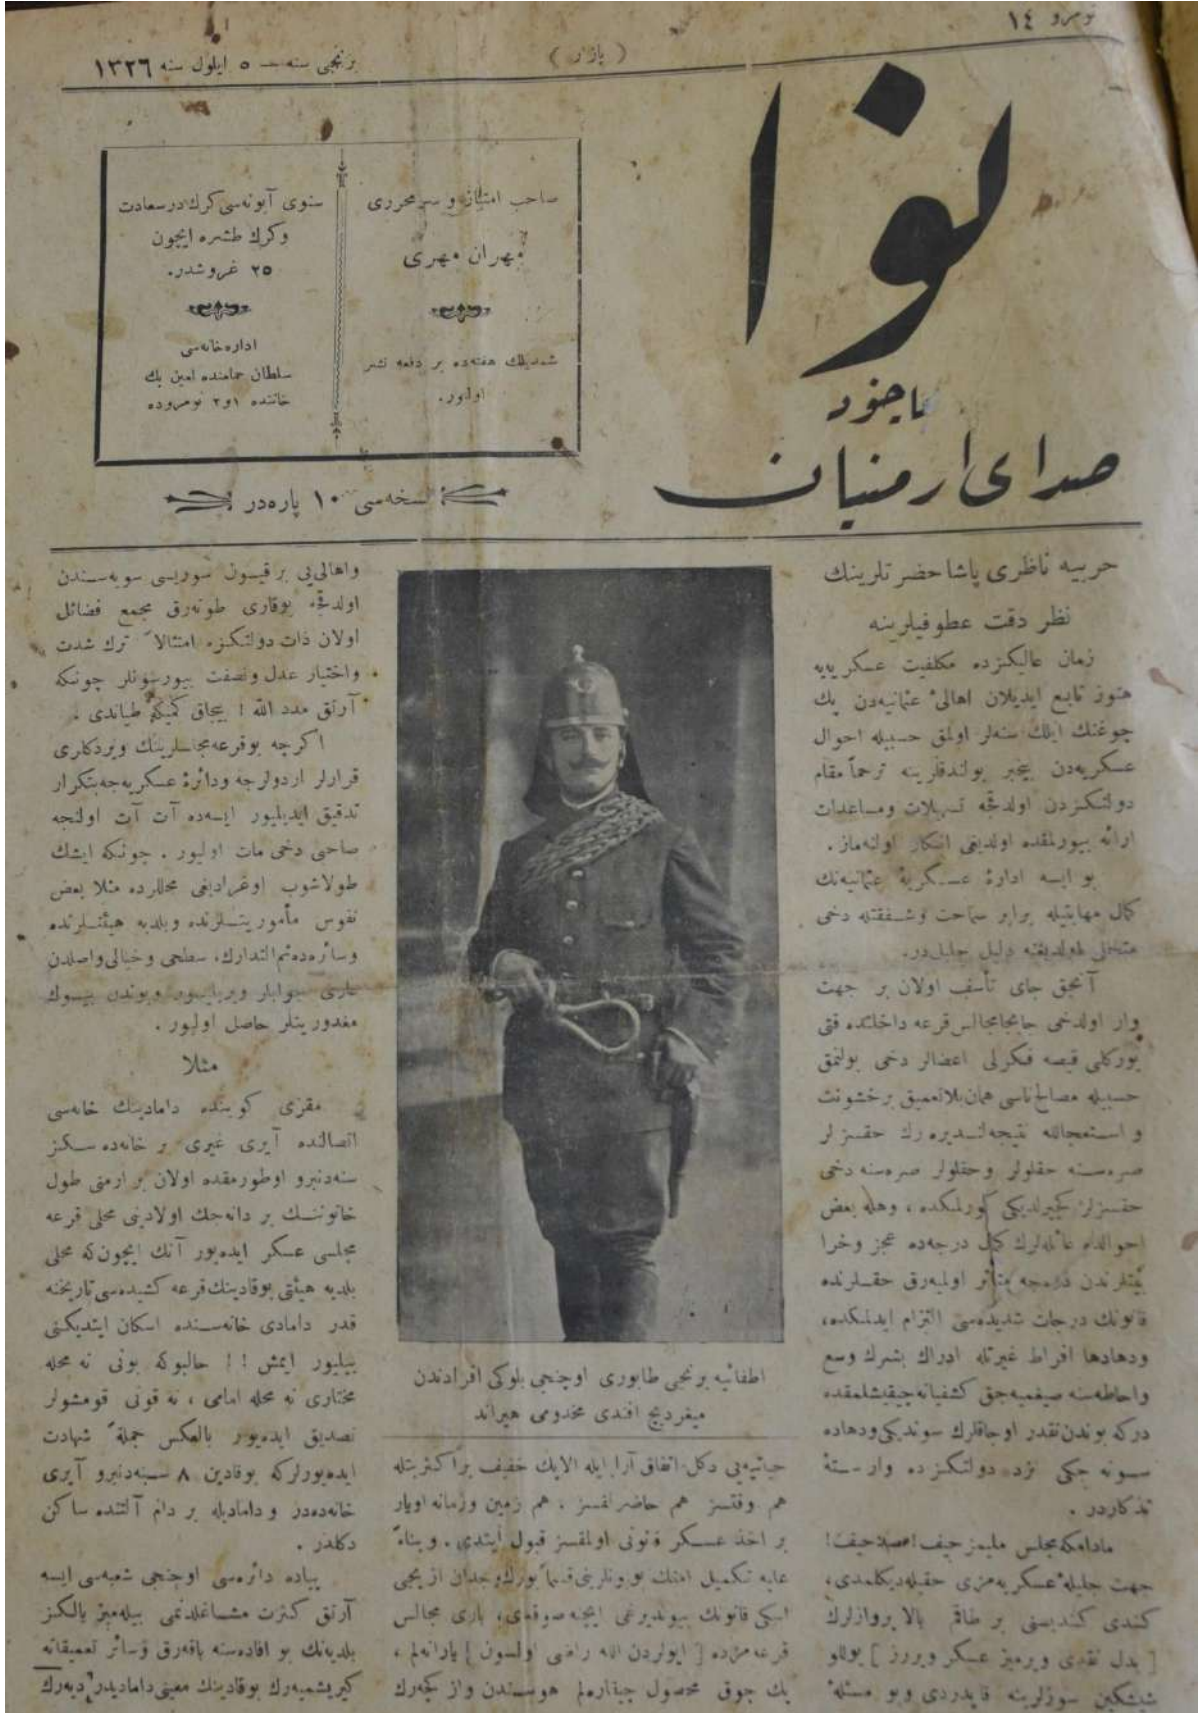 نومرو ١٤
( پازار )
برنجی سنه — ٥ ایلول سنه ١٣٢٦
نوا
یاخود
صدای ارمنیان
صاحب امتیاز و سرمحرری
مهران مهری
شمدیلك هفته‌ده بر دفعه نشر
اولنور.
سنوی آبونه‌سی كرك درسعادت
وكرك طشره ایچون
٢٥ غروشدر.
اداره‌خانه‌سی
سلطان حمامنده امین بك
خاننده ١و٢ نومروده
نسخه‌سی ١٠ پاره‌در
حربیه ناظری پاشا حضرتلرینك
نظر دقت عطوفیلرینه
زمان عالیكزده مكلفیت عسكریه‌یه
هنوز تابع ایدیلان اهالیٔ عثمانیه‌دن پك
چوغنك ایلك سنه‌لر اولمق حسبیله احوال
عسكریه‌دن بیخبر بولندقلرینه ترحماً مقام
دولتكزدن اولدقجه تسهیلات ومساعدات
ارائه بیورلمقده اولدیغی انكار اولنه‌ماز.
بو ایسه ادارهٔ عسكریهٔ عثمانیه‌نك
كمال مهابتیله برابر سماحت وشفقتله دخی
متحلی اولدیغنه دلیل جلیلدر.
آنجق جای تأسف اولان بر جهت
وار اولدخی جابجا مجالس قرعه داخلنده قتی
یوركلی قیصه فكرلی اعضالر دخی بولنمق
حسبیله مصالح ناسی همان بلاتعمیق برخشونت
و استعجالله نتیجه‌لندیره‌رك حقسزلر
صره‌سنه حقلولر وحقلولر صره‌سنه دخی
حقسزلر كچیرلدیكی كورلمكده، وهله بعض
احوالده عائله‌لرك كمال درجه‌ده عجز وخرا
بیتلرندن ذره‌جه متأثر اولمیه‌رق حقلرنده
قانونك درجات شدیده‌سی التزام ایدلمكده،
ودهادها افراط غیرتله ادراك بشرك وسع
واحاطه‌سنه صیغمیه‌جق كشفیانه چیقیشلمقده
دركه بوندن نقدر اوجاقلرك سوندیكی ودهاده
سونه جكی نزد دولتكزده وارستهٔ
تذكاردر.
مادامكه مجلس ملیمز حیف! صد حیف!
جهت جلیلهٔ عسكریه‌مزی حقیله دیكلمدی،
كندی كندیسنی بر طاقم بالا پروازلرك
[ بدل نقدی ویرمیز عسكر ویررز ] یوللو
شیشكین سوزلرینه قاپدردی وبو مسئلهٔ
اطفائیه برنجی طابوری اوچنجی بلوكی افرادندن
میغردیچ افندی مخدومی هیراند
حیاتیه‌یی دكل اتفاق آرا ایله الایك خفیف براكثریتله
هم وقتسز هم حاضرلقسز، هم زمین وزمانه اویار
بر اخذ عسكر قانونی اولمقسز قبول ایتدی. وبناءً
علیه تكمیل امتك
اسكی قانونك بیوندیرغی ایچنه صوقدی، باری مجالس
قرعه مزده [ ایولردن الله راضی اولسون ] یارانه‌لم،
پك چوق محصول چیقاره‌لم هوسندن واز كچه‌رك
واهالی‌یی بر قیون سوریسی سویه‌سندن
اولدقجه یوقاری طوته‌رق مجمع فضائل
اولان ذات دولتكزه امتثالاً ترك شدت
واختیار عدل ونصفت بیورسونلر چونكه
آرتق مدد الله ! بیچاق كمیكه طیاندی.
اكرچه بوقرعه مجلسلرینك ویردكلری
قرارلر اردولرجه ودائرهٔ عسكریه‌جه بتكرار
تدقیق ایدیلیور ایسه‌ده آت آت اولنجه
صاحبی دخی مات اولیور. چونكه ایشك
طولاشوب اوغرادیغی محللرده مثلا بعض
نفوس مأموریتلرنده وبلدیه هیئتلرنده
وسائره‌ده ثم‌التدارك، سطحی وخیالی واصلدن
عاری جوابلر ویریلیور وبوندن بیوك
مغدوریتلر حاصل اولیور.
مثلا
مقری كوینده دامادینك خانه‌سی
اتصالنده آیری غیری بر خانه‌ده سكز
سنه‌دنبرو اوطورمقده اولان بر ارمنی طول
خاتوننك بر دانه‌جك اولادینی محلی قرعه
مجلسی عسكر ایده‌یور آنك ایچون‌كه محلی
بلدیه هیئتی بوقادینك قرعه كشیده‌سی تاریخنه
قدر دامادی خانه‌سنده اسكان ایتدیكنی
بیلیور ایمش !! حالبوكه بونی نه محله
مختاری نه محله امامی، نه قونی قومشولر
تصدیق ایده‌یور بالعكس جملهً شهادت
ایده‌یورلركه بوقادین ٨ سنه‌دنبرو آیری
خانه‌ده‌در و دامادیله بر دام آلتنده ساكن
دكلدر.
پیاده دائره‌سی اوچنجی شعبه‌سی ایسه
آرتق كثرت مشاغلدنمی بیله‌میز یالكز
بلدیه‌نك بو افاده‌سنه باقه‌رق وسائر تعمیقاته
كیریشمیه‌رك بوقادینك معینی دامادیدر، دیه‌رك